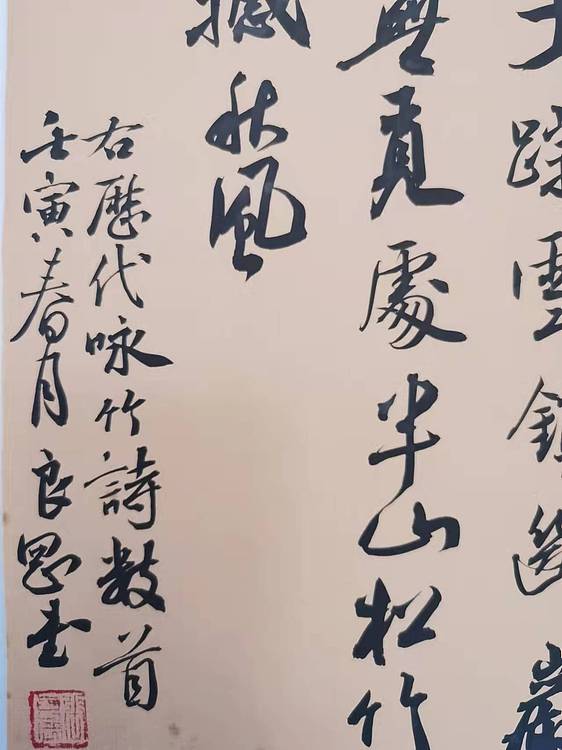 踪雲鎖
無覓處半山松竹
撼秋風
右歷代咏竹詩數首
壬寅春月良書